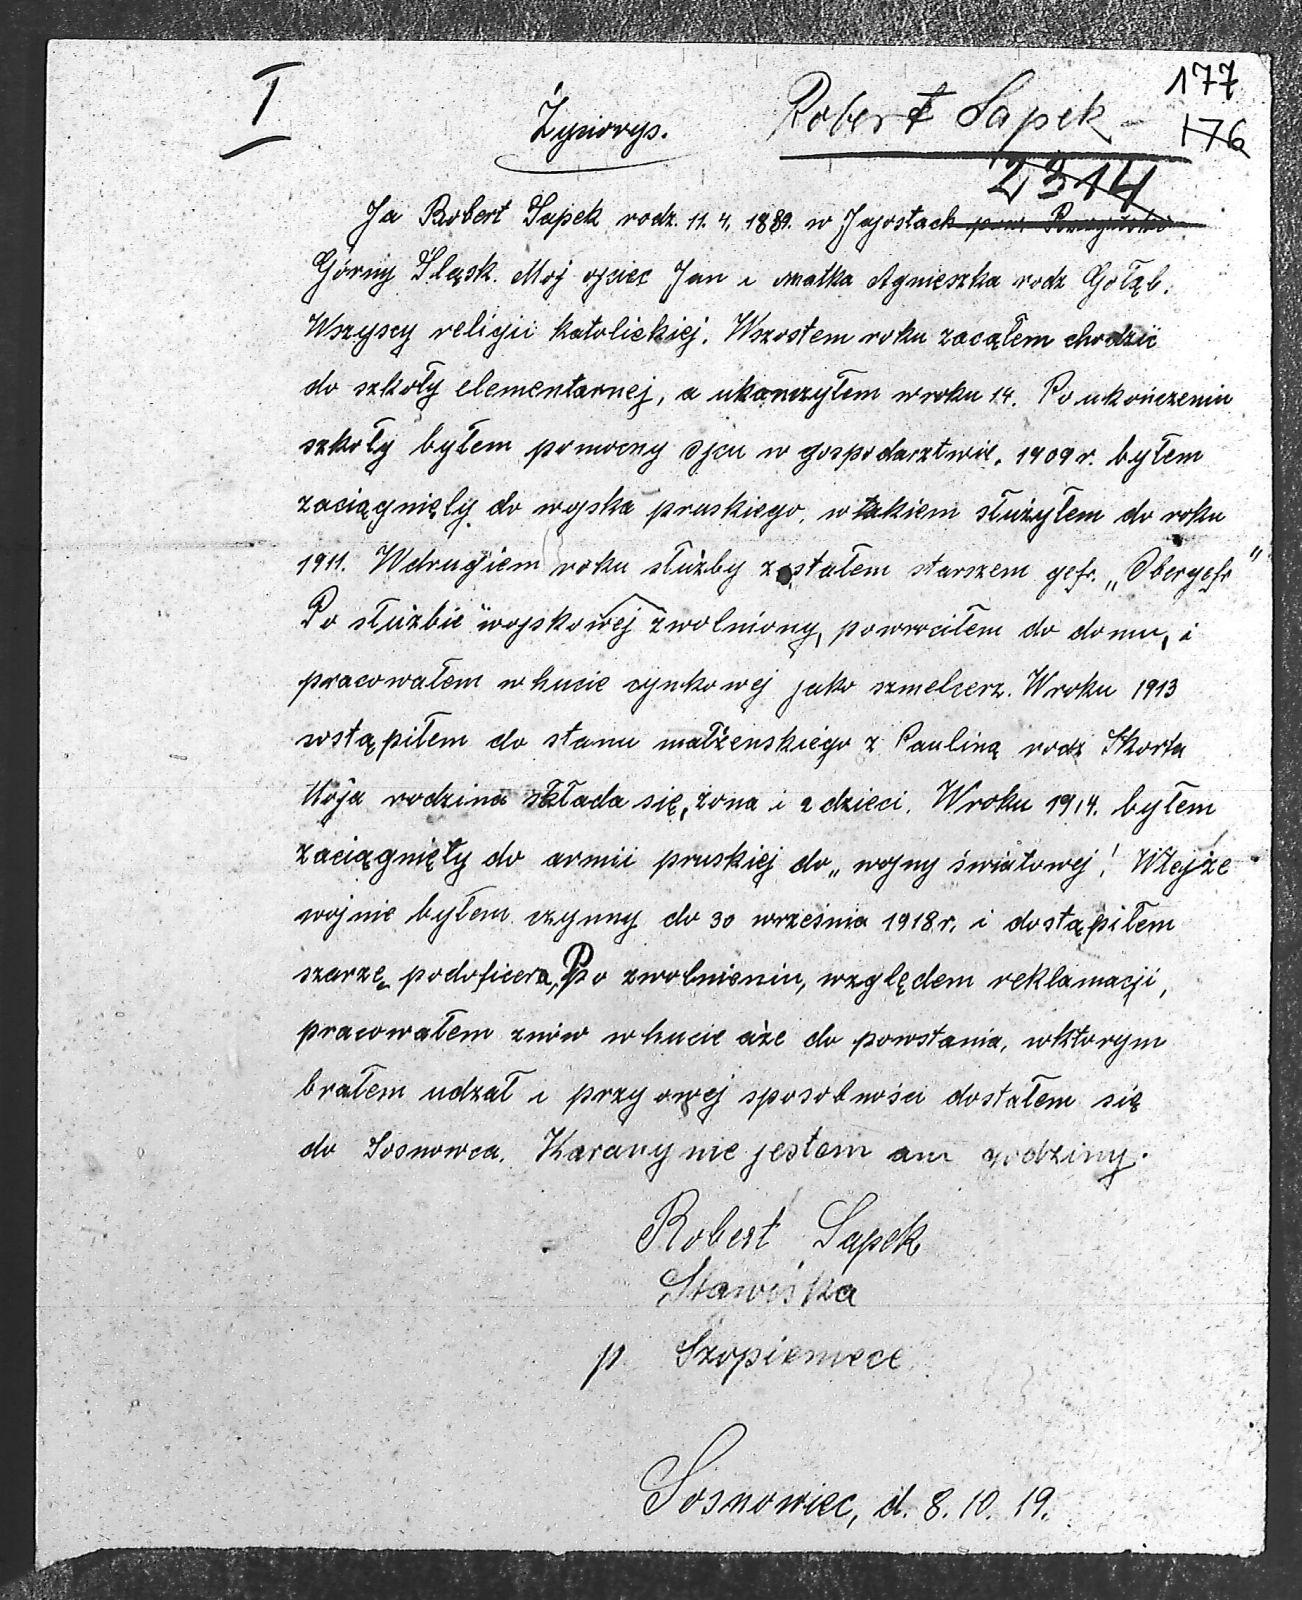 I
177
Życiorys.
Robert Sapek
176
2314
Ja Robert Sapek, rodz. 11. 4. 1889. w Jagostach pow.
Górny Śląsk. Moj ojciec Jan i matka Agnieszka rodz Gołąb.
Wszyscy religii katolickiej. Wszostem roku zacząłem chodzić
do szkoły elementarnej, a ukonczyłem w roku 14. Po ukończeniu
szkoły byłem pomocny ojcu w gospodarztwie. 1909 r. byłem
zaciągnięty do wojska pruskiego, w takiem służyłem do roku
1911. Wdrugiem roku służby zostałem starszem gefr. „Obergefr"
Po służbie wojskowej zwolniony, powrociłem do domu, i
pracowałem w hucie cynkowej jako szmelcerz. W roku 1913
wstąpiłem do stanu małżenskiego z Pauliną rodz Skorta
Moja rodzina składa się, żona i 2 dzieci. W roku 1914. byłem
zaciągnięty do armii pruskiej do „wojny światowej! Wtejże
wojnie byłem czynny do 30 września 1918 r. i dostąpiłem
szarzę podoficera, Po zwolnieniu, względem reklamacji,
pracowałem znów w hucie aże do powstania, wktorym
brałem udzał i przy owej sposobności dostałem się
do Sosnowca. Karany nie jestem ani godziny.
Robert Sapek
Stawiska
p Szopienice
Sosnowiec, d. 8. 10. 19.